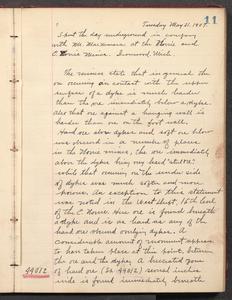 11
Tuesday May 21. 1907.
I put the day underground in company
with Mr. at the Norrie and
Norrie Mines. Ironwood, Mich.
The miners state that in general the
ore occuring in contact with the upper
surface of a dyke is much harder
than the ore immediately below a dyke.
Also that ore against a hanging wall is
harder than ore on the foot wall.
Hard ore above and soft ore below
was observed in a number of places
in the Norrie mines, the ore immediately
above the dyke being very hard
while that occuring on the under side
of dykes was much softer and more
porous. An exception to this statement
was noted in the West Shaft, 15th level
of the Norrie. Here ore is found beneath
a dyke and is as hard as any of the
hard ore found overlying dykes. A
considerable amount of movement appears
to have taken place at this point between
the ore and the dyke. A brecciated zone
44012
of hard ore (Sp. 44012) several inches
wide is found immediately beneath